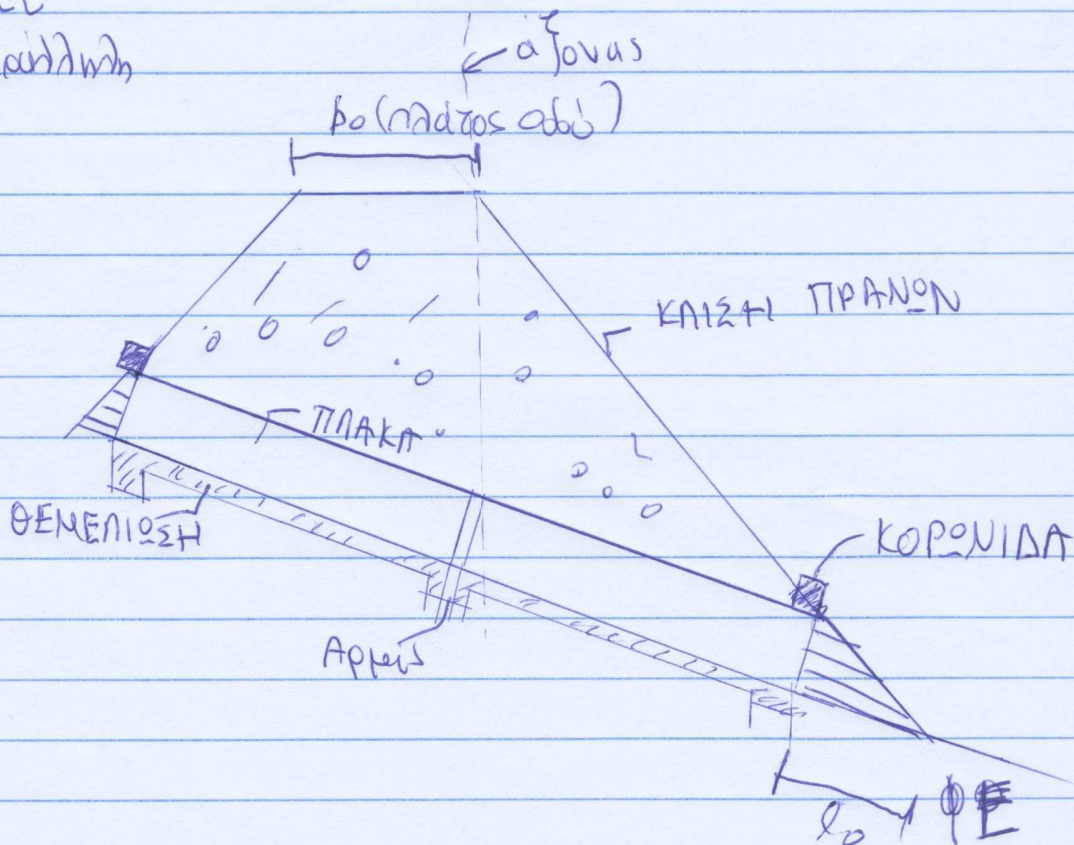 άξονας
bο (πλάτος οδού)
ΚΛΙΣΗ ΠΡΑΝΩΝ
ΠΛΑΚΑ
ΘΕΜΕΛΙΩΣΗ
ΚΟΡΩΝΙΔΑ
Αρμός
lο
ΦΕ